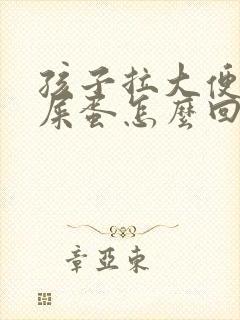 孩子拉大便
屎蛋怎麼回
章亞東